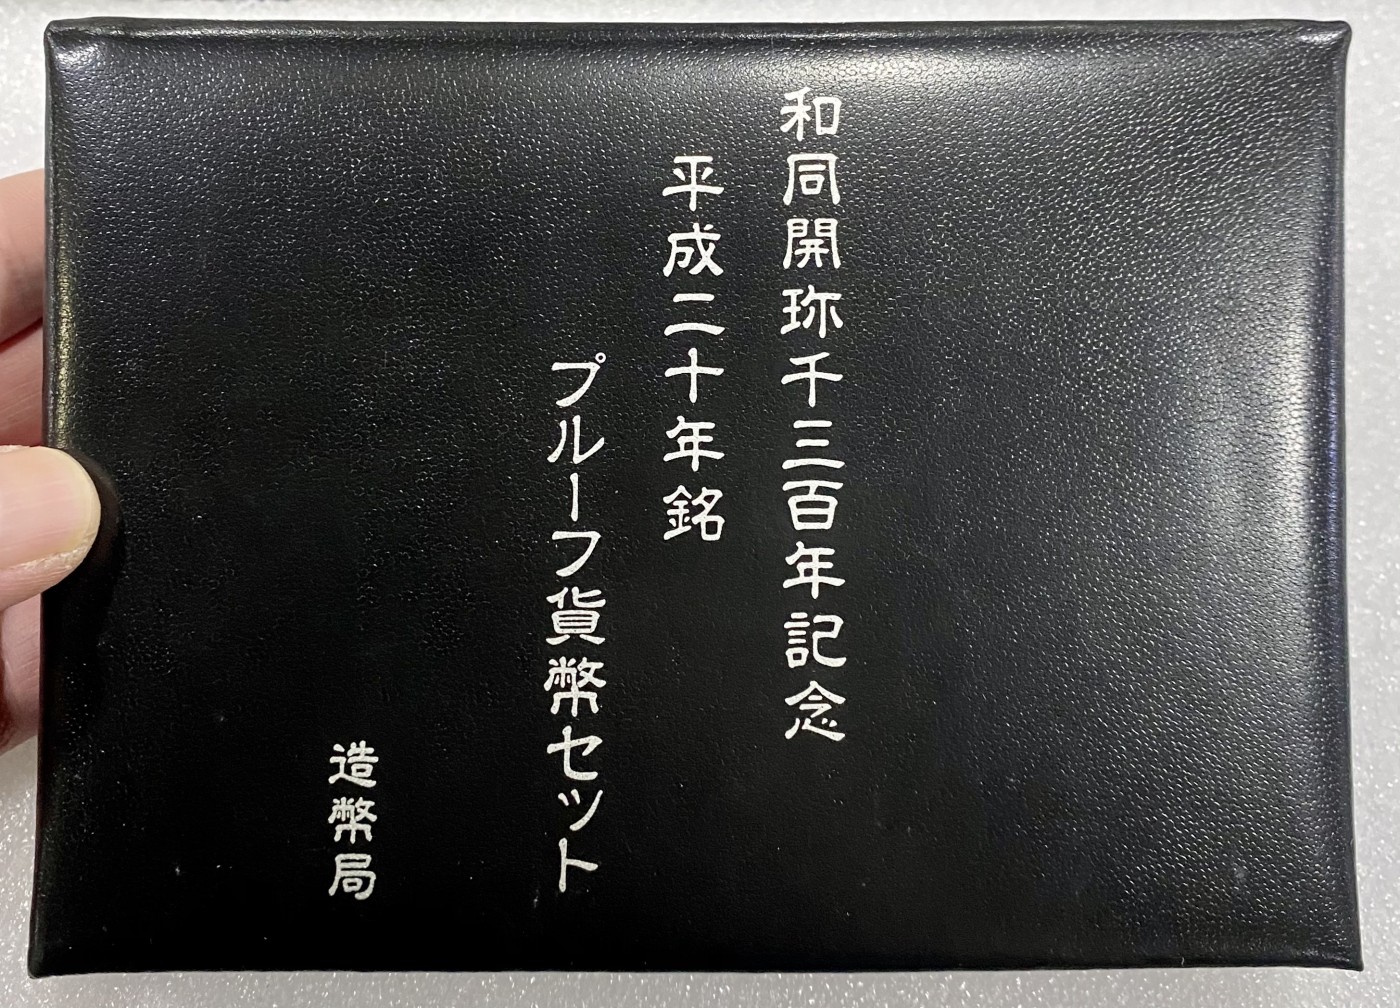 和同開珎千三百年記念
平成二十年銘
プルーフ貨幣セット
造幣局